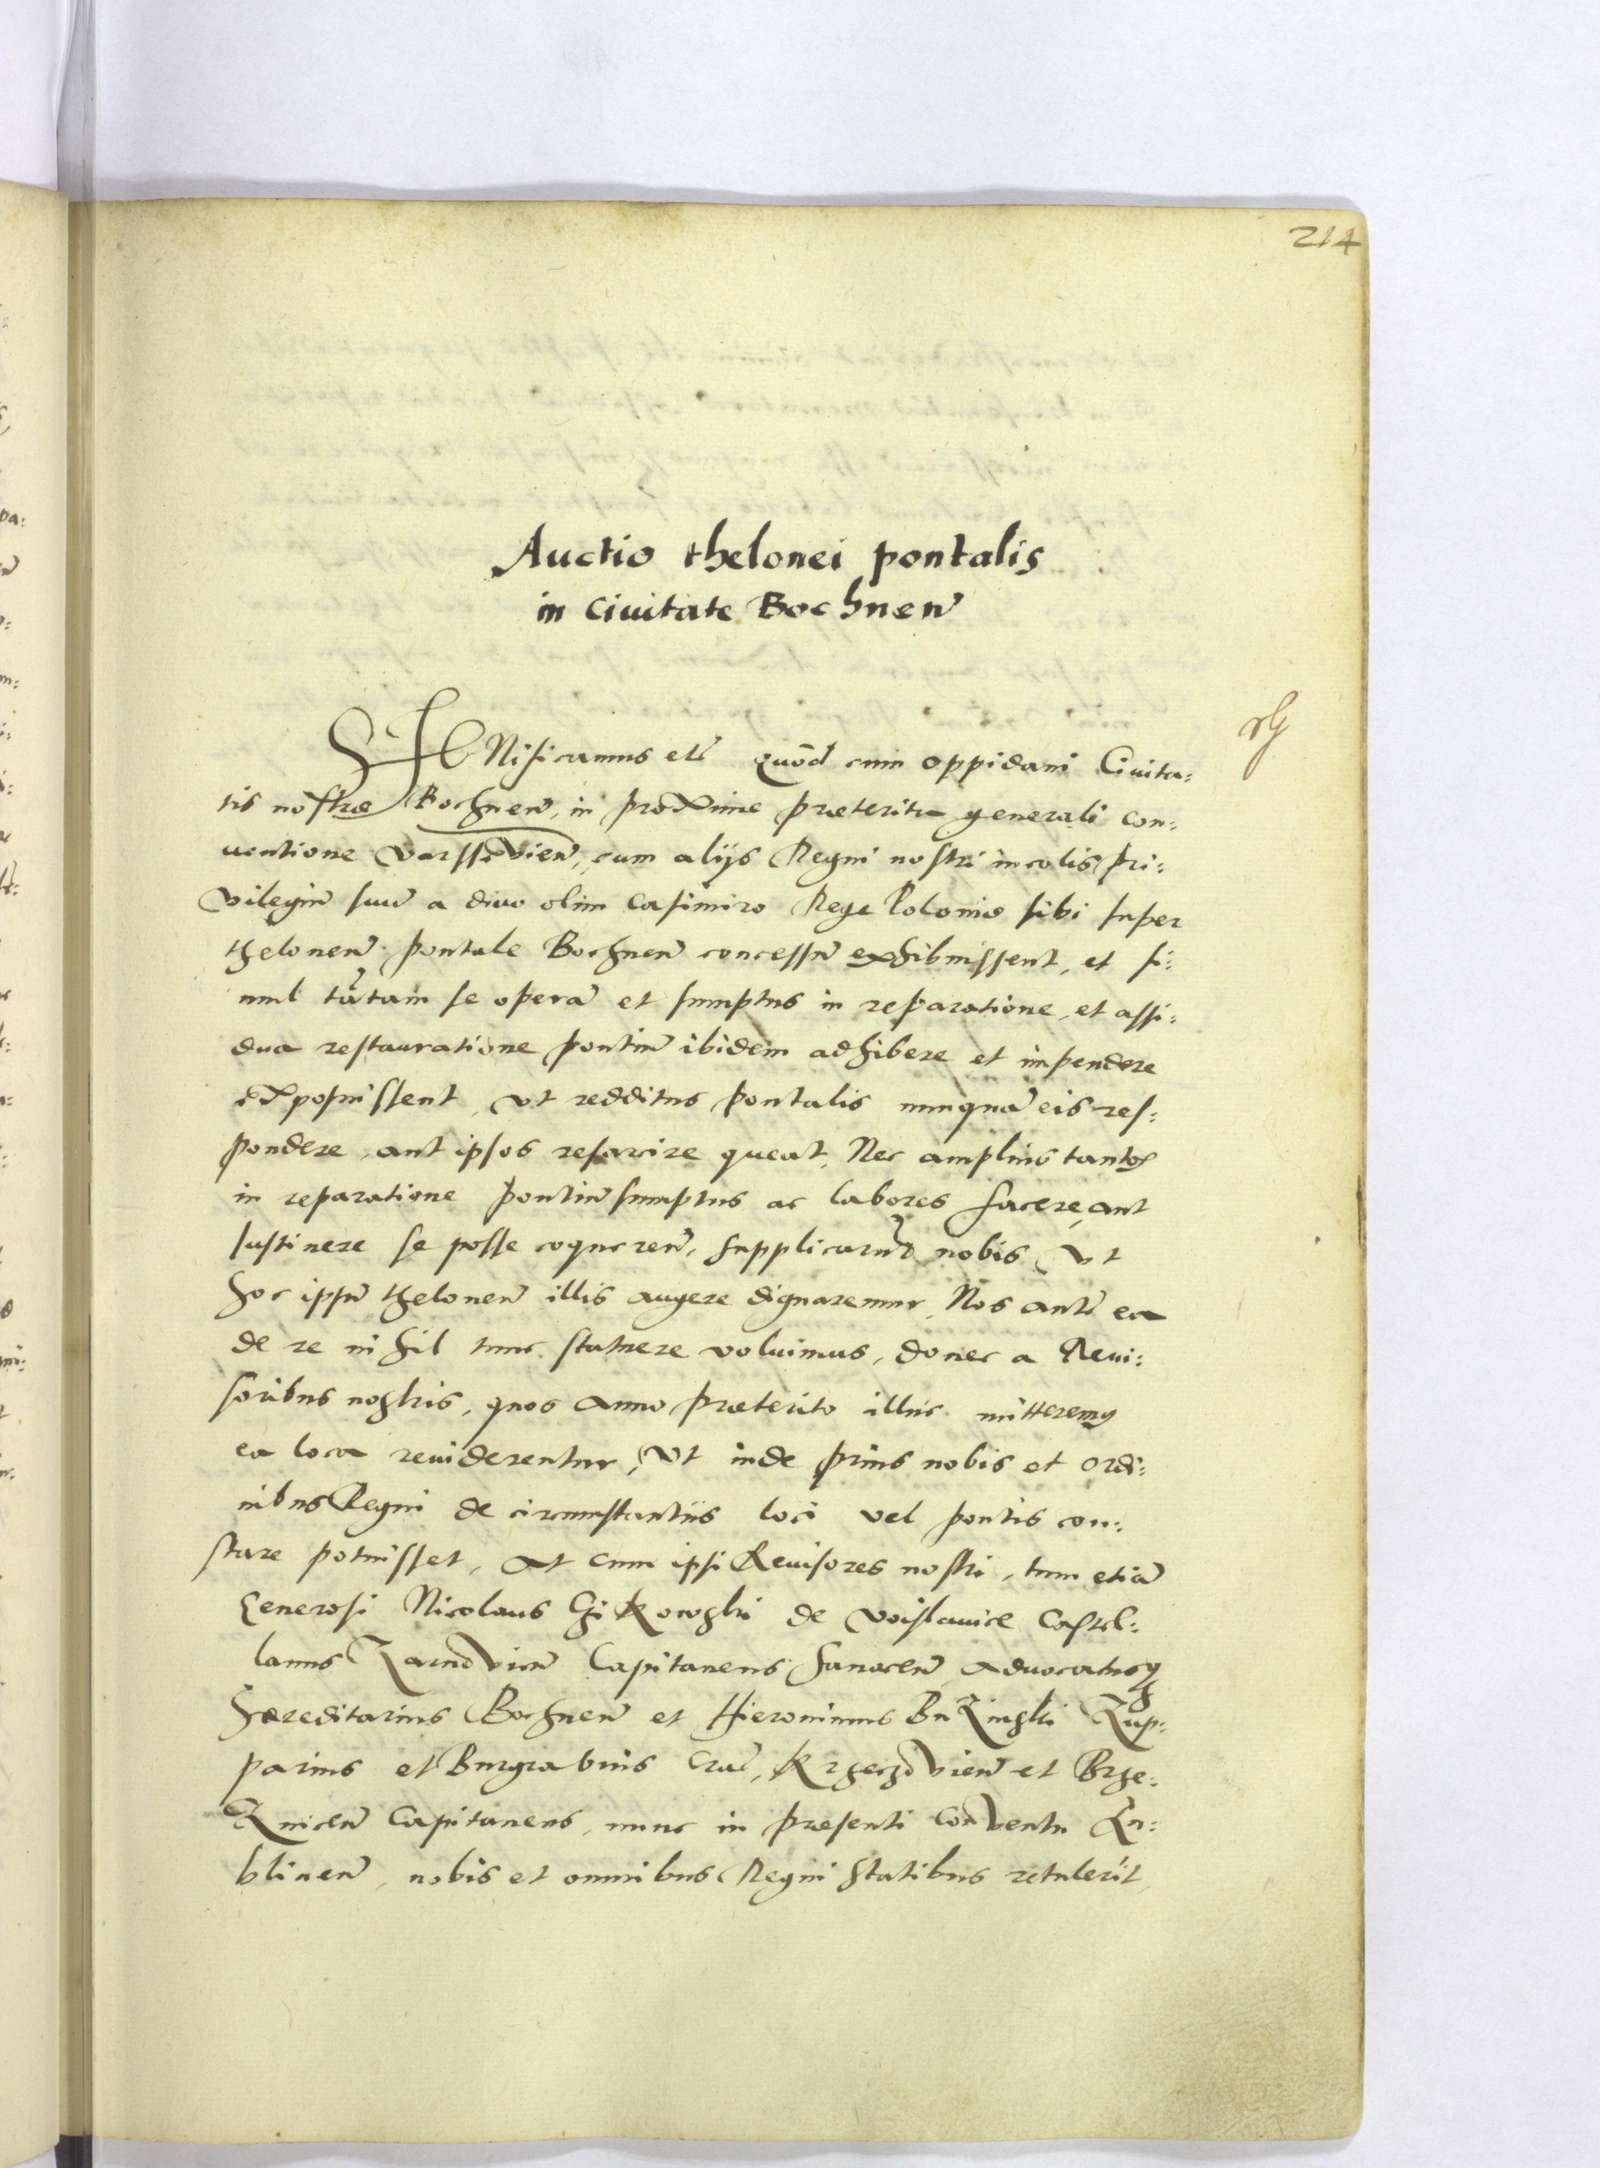 214
Auctio thelonei pontalis
in Ciuitate Bochnen̄
SIGNificamus etc̄ quod cum oppidani Ciuita:
tis nostræ Bochnen̄, in proxime præterita generali con:
uentione Varssovien̄, cum alijs Regni nostri incolis pri:
vilegiū suū a diuo olim Casimiro Rege Poloniæ sibi super
theloneū pontale Bochnen̄ concessū exhibuissent, et si:
mul tātam se operā et sumptus in reparatione, et assi:
dua restauratione pontiū ibidem adhibere et impendere
exposuissent, vt redditus pontalis nunquā eis res:
pondere, aut ipsos resarcire queat, Nec amplius tantos
in reparatione pontiū sumptus ac labores facere, aut
sustinere se posse , supplicarūt nobis, vt
hoc ipsū theloneū illis augere dignaremur, Nos autē ea
de re nihil tunc statuere voluimus, donec a Reui:
soribus nostris, quos anno præterito illuc mitteremus
ea loca reuiderentur, Vt inde prius nobis et ordi:
nibus Regni de circumstantiis loci vel pontis con:
stare potuisset, At cum ipsi Reuisores nostri, tum etiā
Generosi Nicolaus de Voislauice Castel:
lanus Zarnovien̄ Capitaneus Sanocen̄ aduocatusq
hæreditarius Bochnen̄ et Hieronimus Buzinski Zup:
parius et Burgrabius Crac̄, Krzeczovien̄ et Brze:
Znicen̄ Capitaneus, nunc in præsenti conventu Lu:
blinen̄, nobis et omnibus Regni statibus retulerīt,